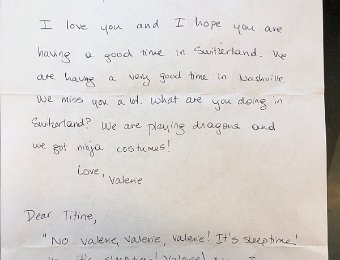 I love you and I hope you are
having a good time in Switzerland. We
are having a very good time in Nashville
We miss you a lot. What are you doing in
Switzerland? We are playing dragons and
we got ninja costumes!
Love, Valerie
Dear Titine,
"No Valerie, Valerie, Valerie! It's sleeptime!